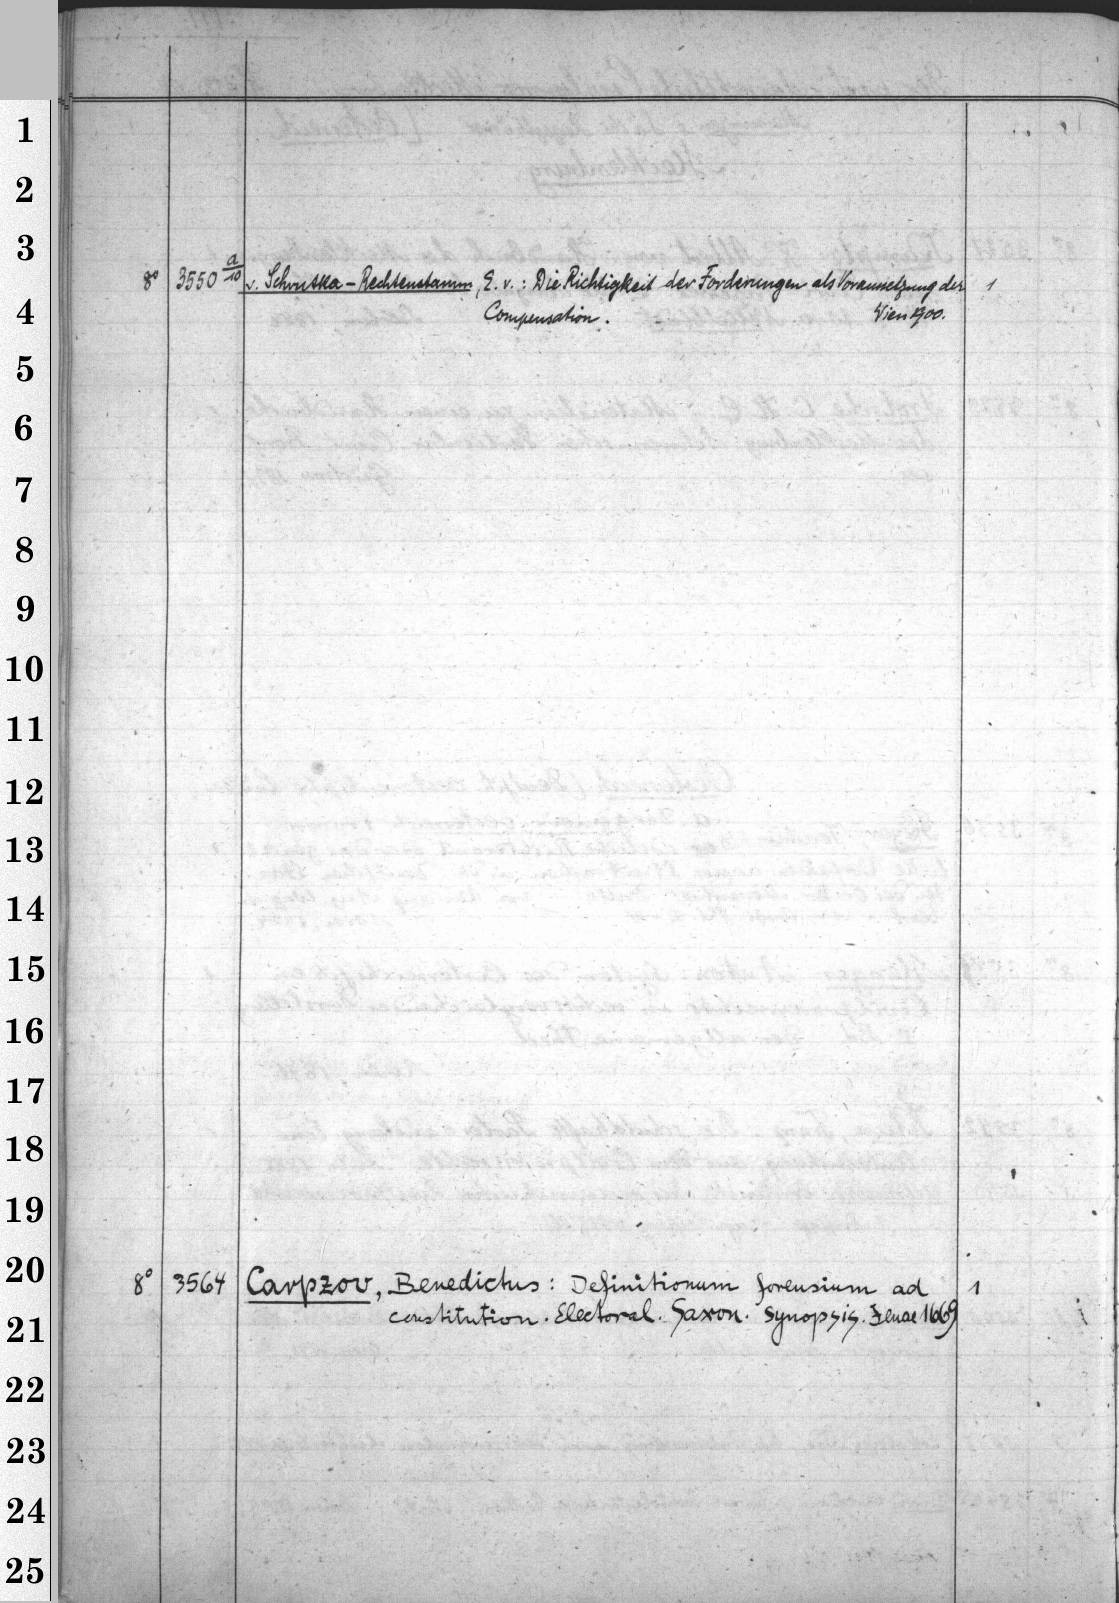 1
2
3
8° 3550 a/10 v. Schrutka-Rechtenstamm, E. v.: Die Richtigkeit der Forderungen als Voraussetzung der 1
4
Compensation. Wien 1900.
5
6
7
8
9
10
11
12
13
14
15
16
17
18
19
20
8° 3564 Carpzov, Benedictus: Definitionum forensium ad 1
constitution. Electoral. Saxon. Synopsis. Jenae 1669
21
22
23
24
25